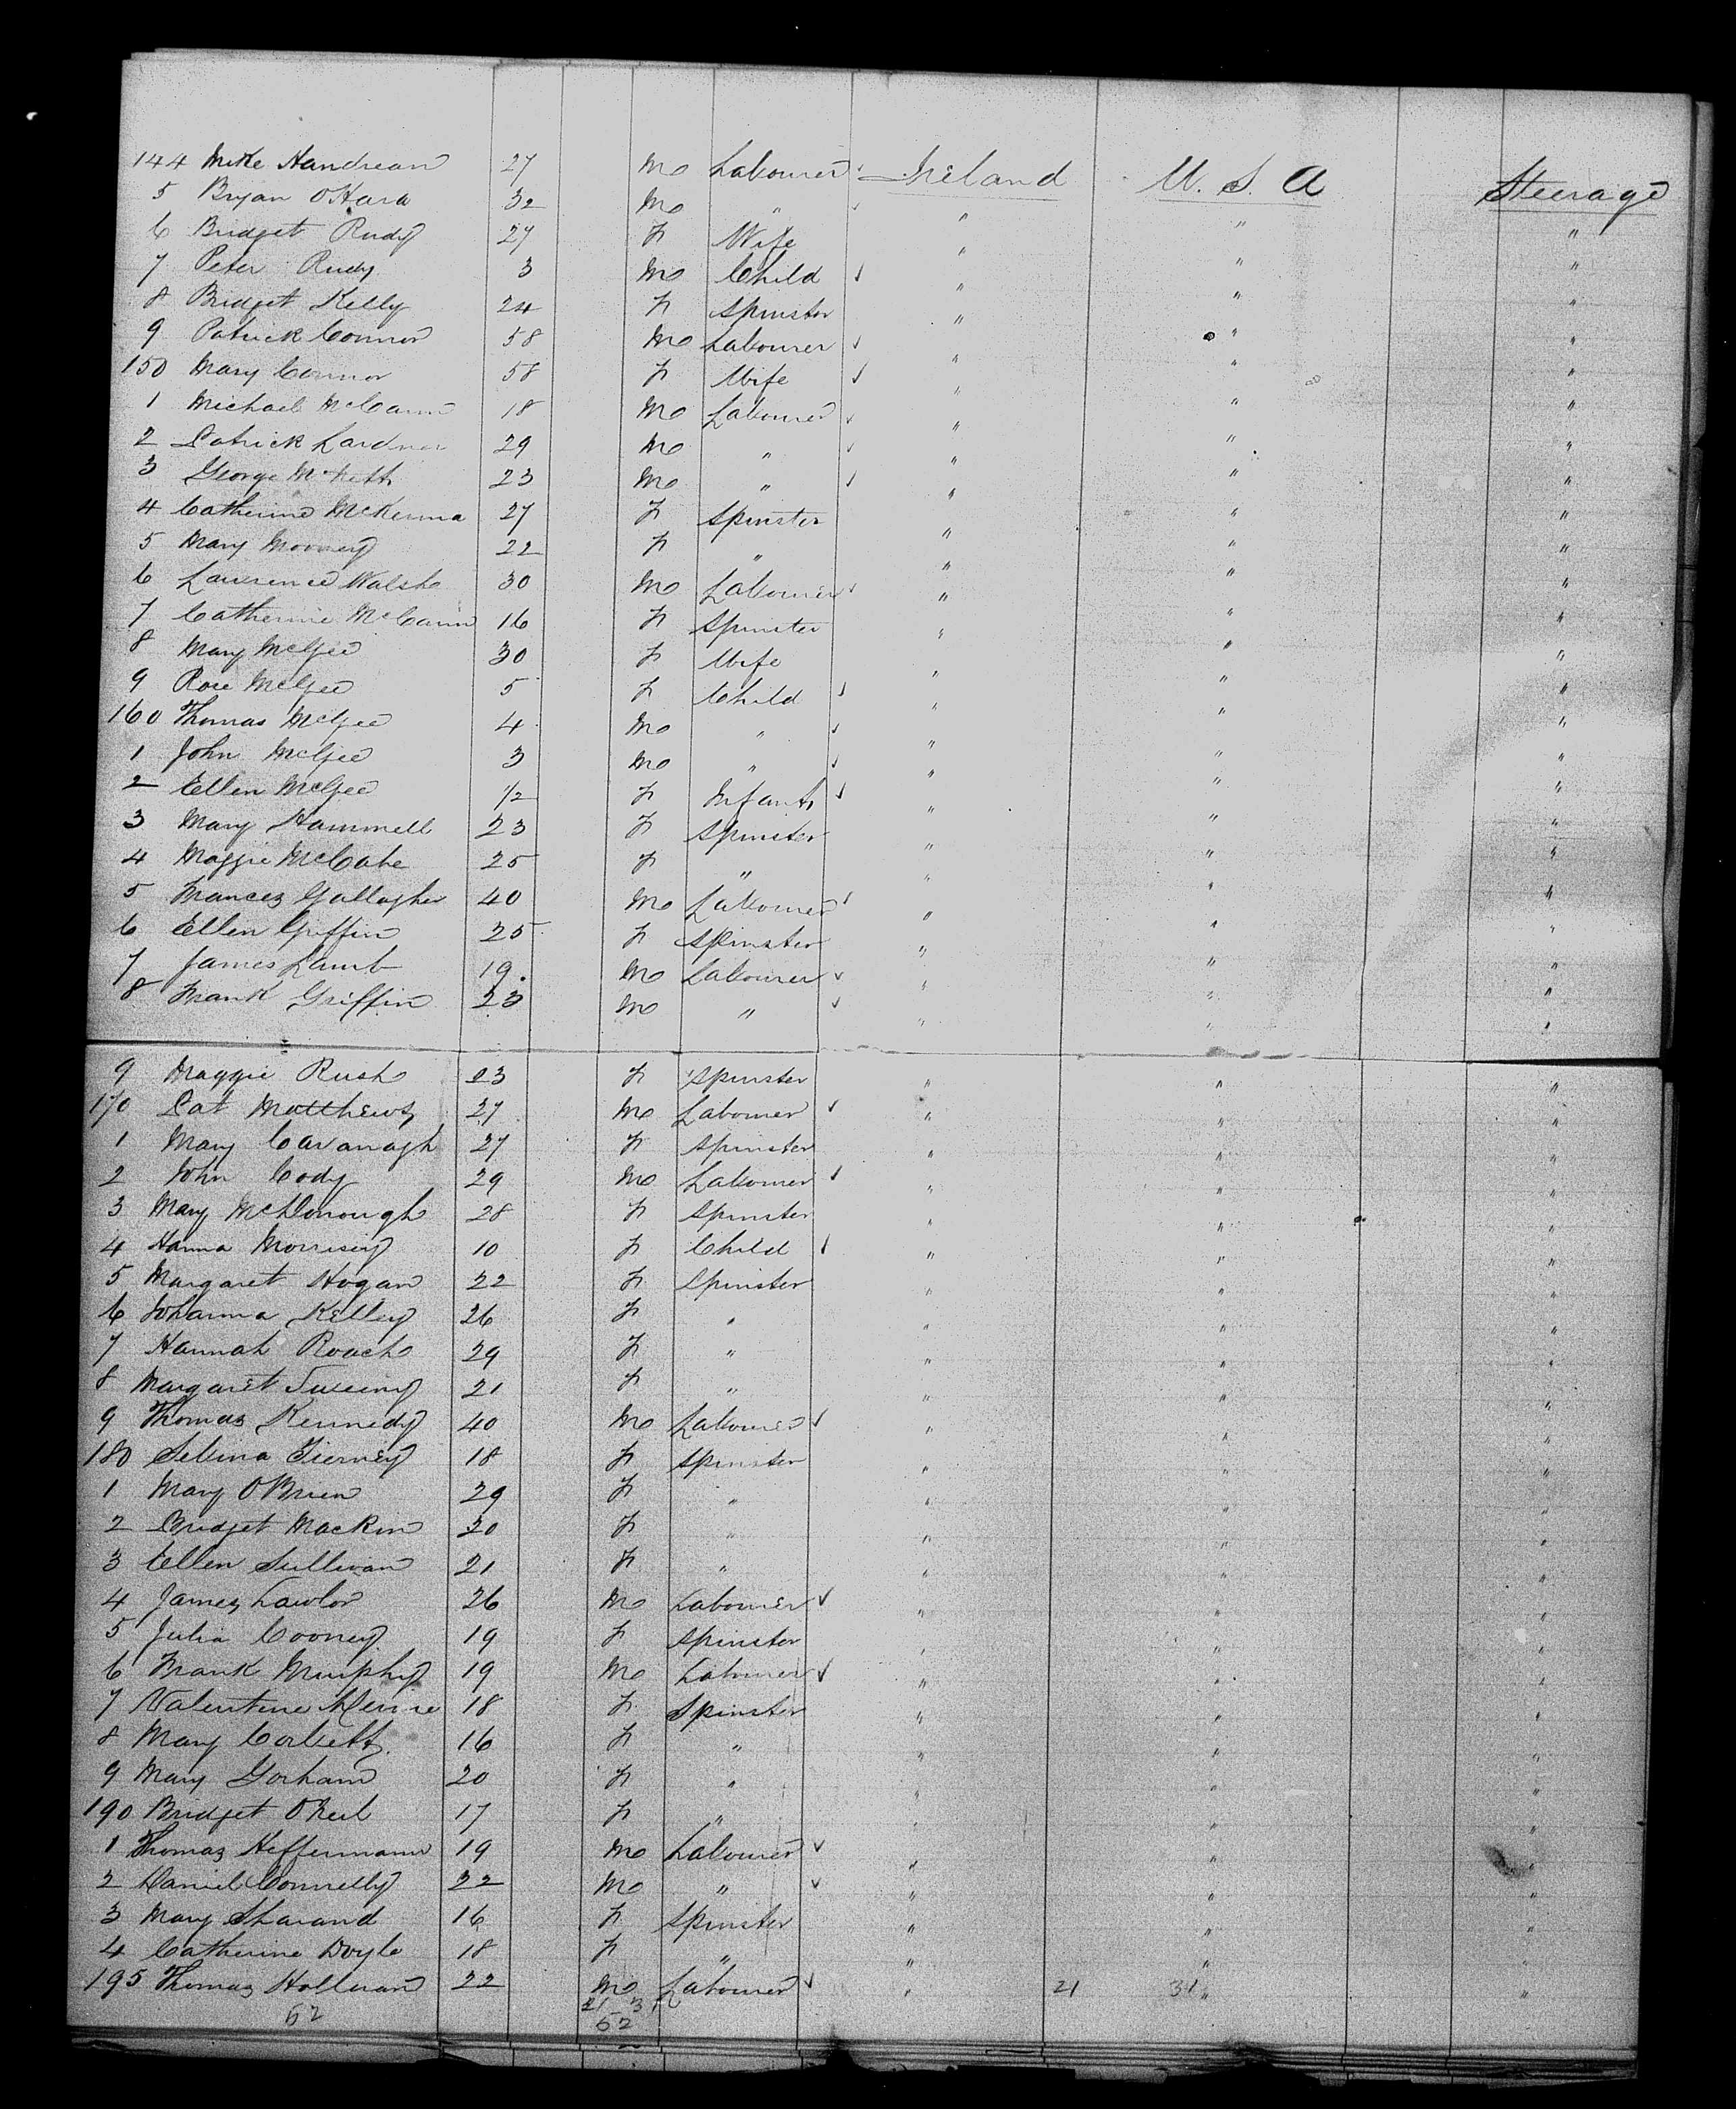 144 Mike Handrean 27 M Labourer Ireland U. S. A Steerage
5 Bryan O'Hara 32 M " " " "
6 Bridget Rudy 27 F Wife " " "
7 Peter Rudy 3 M Child " " "
8 Bridget Kelly 24 F Spinster " " "
9 Patrick Connor 58 M Labourer " " "
150 Mary Connor 58 F Wife " " "
1 Michael McCann 18 M Labourer " " "
2 Patrick Lardner 29 M " " " "
3 George 23 M " " " "
4 Catherine McKenna 27 F Spinster " " "
5 Mary Mooney 22 F " " " "
6 Lawrence Walsh 30 M Labourer " " "
7 Catherine McCann 16 F Spinster " " "
8 Mary McGee 30 F Wife " " "
9 Rose McGee 5 F Child " " "
160 Thomas McGee 4 M " " " "
1 John McGee 3 M " " " "
2 Ellen McGee 1/2 F Infant " " "
3 Mary Hammell 23 F Spinster " " "
4 Maggie McCabe 25 F " " " "
5 Frances Gallagher 40 M Labourer " " "
6 Ellen Griffin 25 F Spinster " " "
7 James Lamb 19 M Labourer " " "
8 Frank Griffin 23 M " " " "
9 Maggie Rush 23 F Spinster " " "
170 Pat Matthews 27 M Labourer " " "
1 Mary Cavanagh 27 F Spinster " " "
2 John Cody 29 M Labourer " " "
3 Mary McDonough 28 F Spinster " " "
4 Hanna Morrisey 10 F Child " " "
5 Margaret Hogan 22 F Spinster " " "
6 Johanna Kelley 26 F " " " "
7 Hannah Roach 29 F " " " "
8 Margaret Sweeny 21 F " " " "
9 Thomas Kennedy 40 M Labourer " " "
180 Selina Tierney 18 F Spinster " " "
1 Mary O'Brien 29 F " " " "
2 Bridget Mackin 20 F " " " "
3 Ellen Sullivan 21 F " " " "
4 James Lawlor 26 M Labourer " " "
5 Julia Cooney 19 F Spinster " " "
6 Frank Murphy 19 M Labourer " " "
7 Valentine 18 F Spinster " " "
8 Mary Corbett 16 F " " " "
9 Mary Gorham 20 F " " " "
190 Bridget O'Neil 17 F " " " "
1 Thomas Heffermann 19 M Labourer " " "
2 Daniel Connelly 22 M " " " "
3 Mary Sharand 16 F Spinster " " "
4 Catherine Doyle 18 F " " " "
195 Thomas Holland 22 M Labourer " 21 31 " "
52 21 31
52